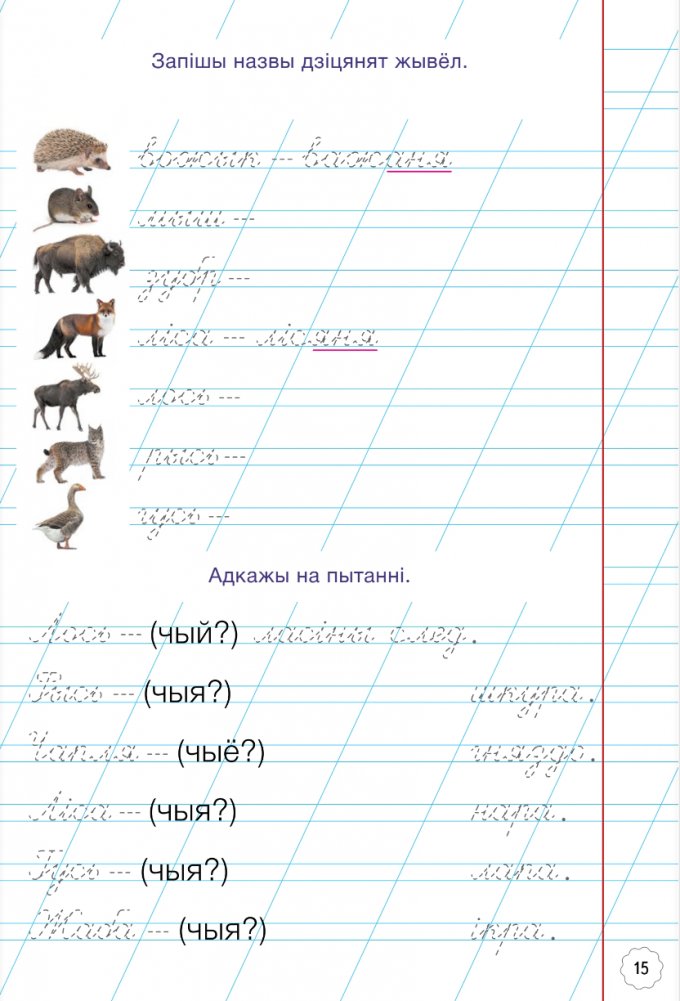 Запішы назвы дзіцянят жывёл.
вожык — важаня
мыш —
зубр —
ліса — лісяня
лось —
рысь —
гусь —
Адкажы на пытанні.
Лось — (чый?) ласіны след.
Рысь — (чыя?) шкура.
Чапля — (чыё?) гняздо.
Ліса — (чыя?) нара.
Гусь — (чыя?) лапа.
Жаба — (чыя?) ікра.
15